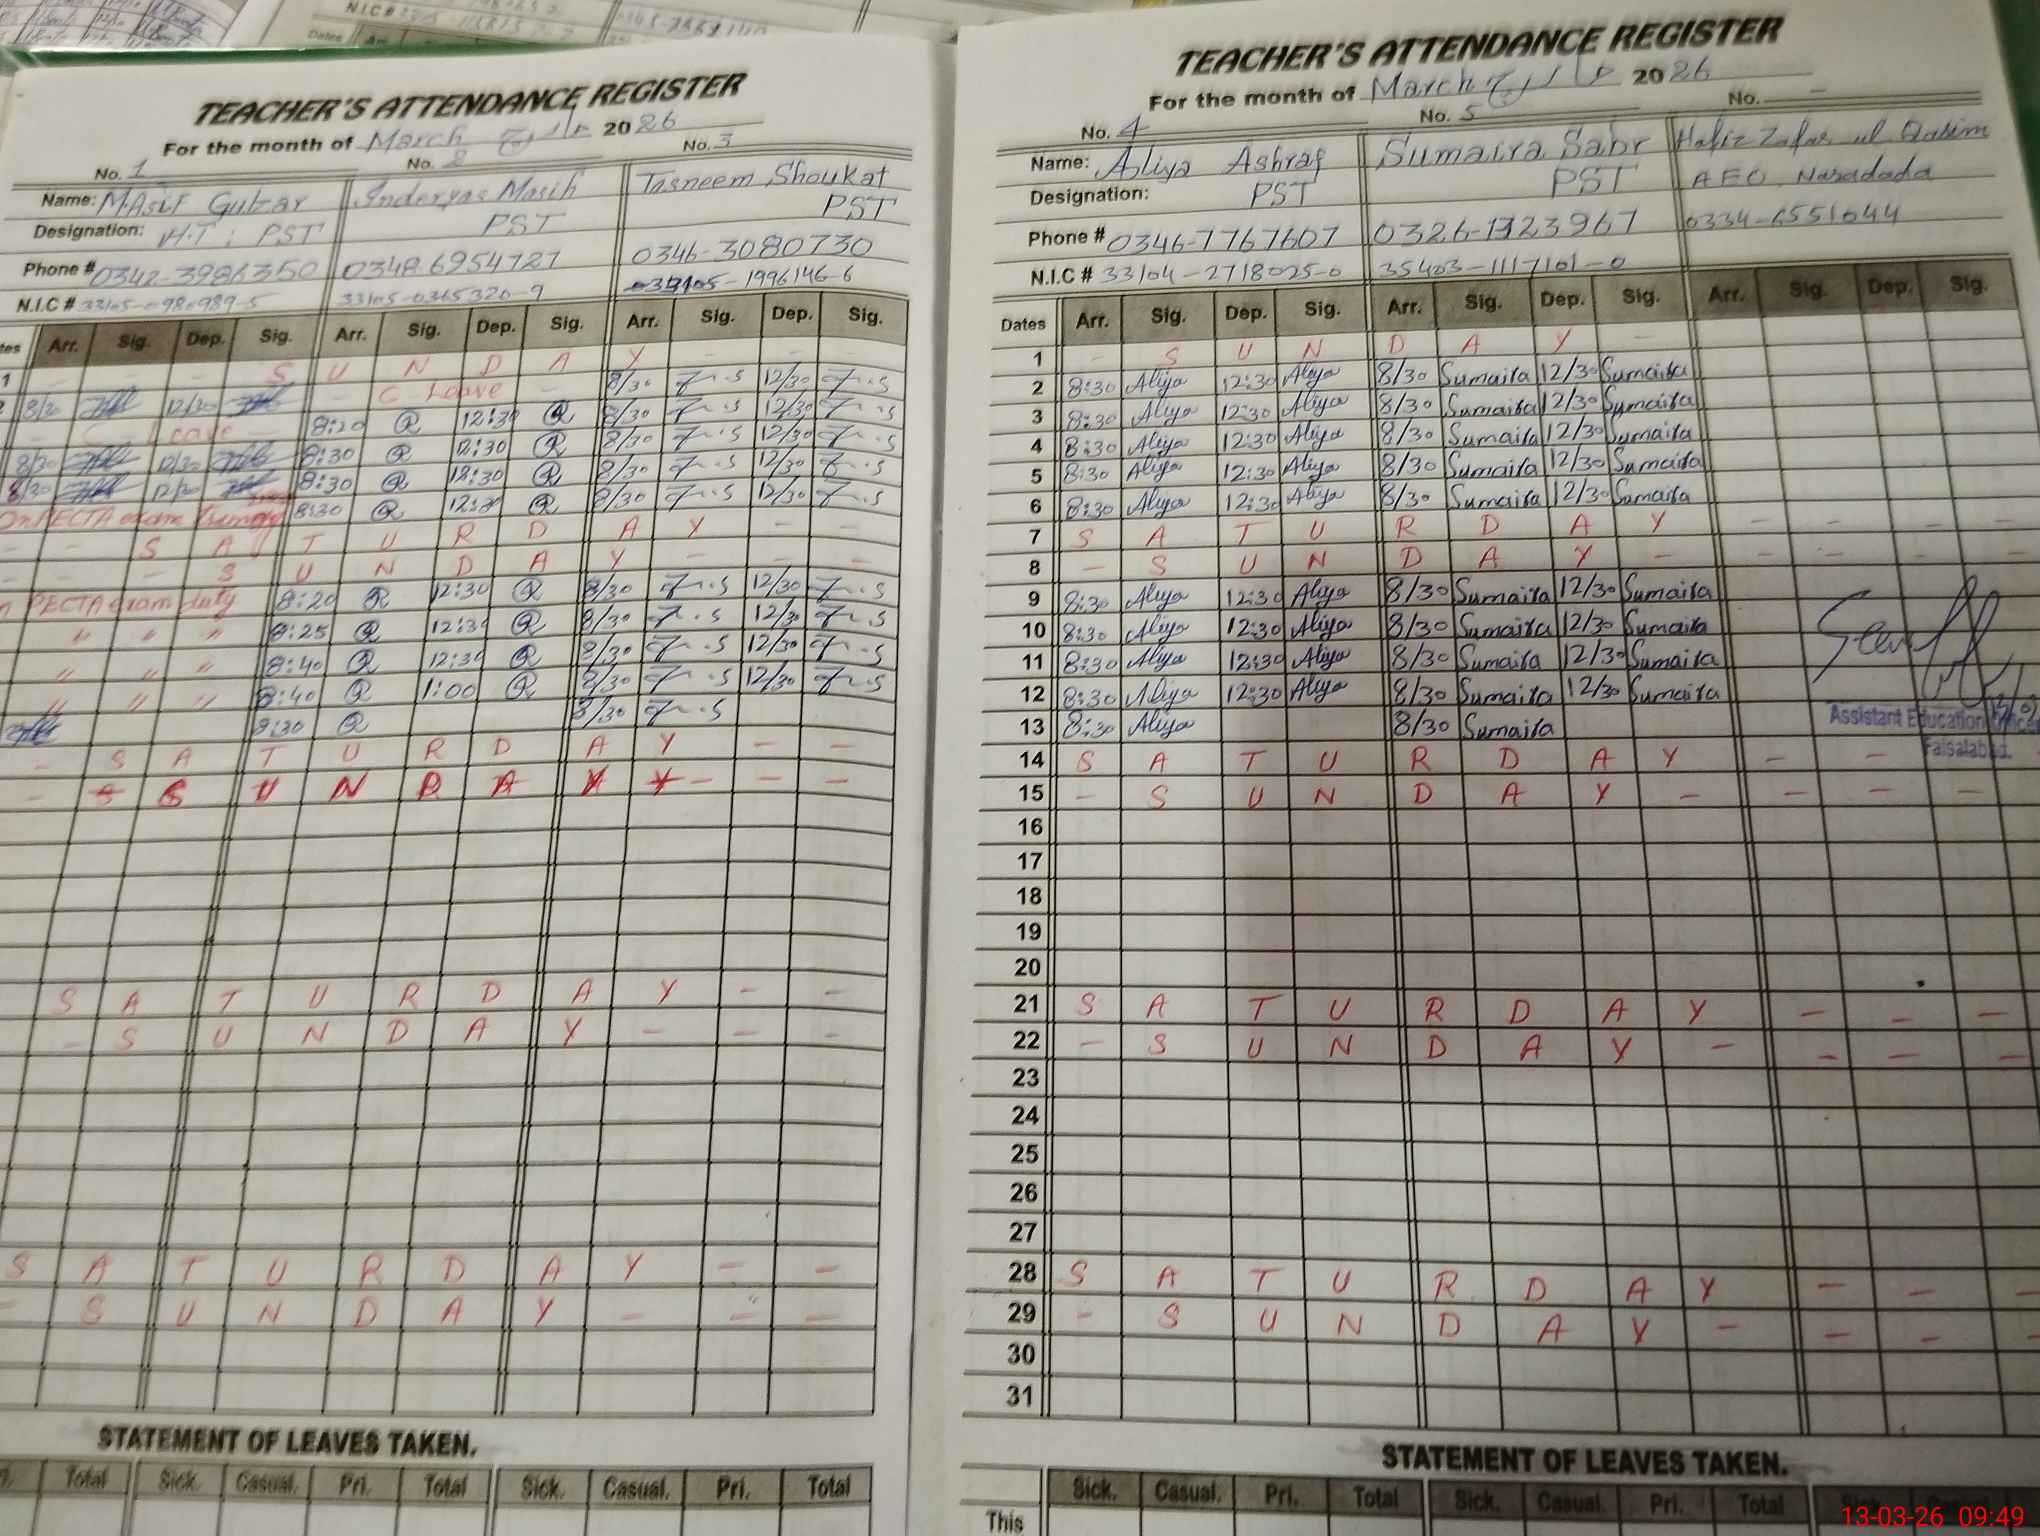 TEACHER'S ATTENDANCE REGISTER
For the month of March 2026
No. 1 No. 2 No. 3
Name: M Asif Gulzar Inderyas Masih Tasneem Shoukat
Designation: H.T : PST PST PST
Phone # 0342-3986350 0348 6954727 0346-3080730
N.I.C # 33105-0365320-9 1996146-6
Arr. Sig. Dep. Sig. Arr. Sig. Dep. Sig. Arr. Sig. Dep. Sig.
1 - - - S U N D A Y - - -
8/30 12/30 - C Leave - 8/30 T.S 12/30 T.S
- C Leave 8:20 R 12:30 R 8/30 T.S 12/30 T.S
8/30 12/30 8:30 R 12:30 R 8/30 T.S 12/30 T.S
8/30 12/30 8:30 R 12:30 R 8/30 T.S 12/30 T.S
On PECTA exam 8:30 R 12:30 R 8/30 T.S 12/30 T.S
- - S A T U R D A Y - -
- - - S U N D A Y - - -
PECTA exam duty 8:20 R 12:30 R 8/30 T.S 12/30 T.S
" " " 8:25 R 12:30 R 8/30 T.S 12/30 T.S
" " " 8:40 R 12:30 R 8/30 T.S 12/30 T.S
" " " 8:40 R 1:00 R 8/30 T.S 12/30 T.S
8:30 R 8/30 T.S
- S A T U R D A Y - -
- S U N D A Y - - -
S A T U R D A Y - -
- S U N D A Y - - -
S A T U R D A Y - -
- S U N D A Y - - -
STATEMENT OF LEAVES TAKEN.
Total Sick. Casual. Pri. Total Sick. Casual. Pri. Total
TEACHER'S ATTENDANCE REGISTER
For the month of March 2026
No. 4 No. 5 No. -
Name: Aliya Ashraf Sumaira Sabr Hafiz Zafar ul Qasim
Designation: PST PST AEO
Phone # 0346-7767607 0334-6551044
N.I.C # 33104-2718025-0 35403-1117101-0
Dates Arr. Sig. Dep. Sig. Arr. Sig. Dep. Sig. Arr. Sig. Dep. Sig.
1 - S U N D A Y -
2 8:30 Aliya 12:30 Aliya 8/30 Sumaira 12/30 Sumaira
3 8:30 Aliya 12:30 Aliya 8/30 Sumaira 12/30 Sumaira
4 8:30 Aliya 12:30 Aliya 8/30 Sumaira 12/30 Sumaira
5 8:30 Aliya 12:30 Aliya 8/30 Sumaira 12/30 Sumaira
6 8:30 Aliya 12:30 Aliya 8/30 Sumaira 12/30 Sumaira
7 S A T U R D A Y - - - -
8 - S U N D A Y - - - - -
9 8:30 Aliya 12:30 Aliya 8/30 Sumaira 12/30 Sumaira
10 8:30 Aliya 12:30 Aliya 8/30 Sumaira 12/30 Sumaira
11 8:30 Aliya 12:30 Aliya 8/30 Sumaira 12/30 Sumaira
12 8:30 Aliya 12:30 Aliya 8/30 Sumaira 12/30 Sumaira
13 8:30 Aliya 8/30 Sumaira
Assistant Education Officer
Faisalabad.
14 S A T U R D A Y - -
15 - S U N D A Y - - - -
16
17
18
19
20
21 S A T U R D A Y - - -
22 - S U N D A Y - - - -
23
24
25
26
27
28 S A T U R D A Y - - -
29 - S U N D A Y - - - -
30
31
STATEMENT OF LEAVES TAKEN.
Sick. Casual. Pri. Total Sick. Casual. Pri. Total Sick.
This
13-03-26 09:49